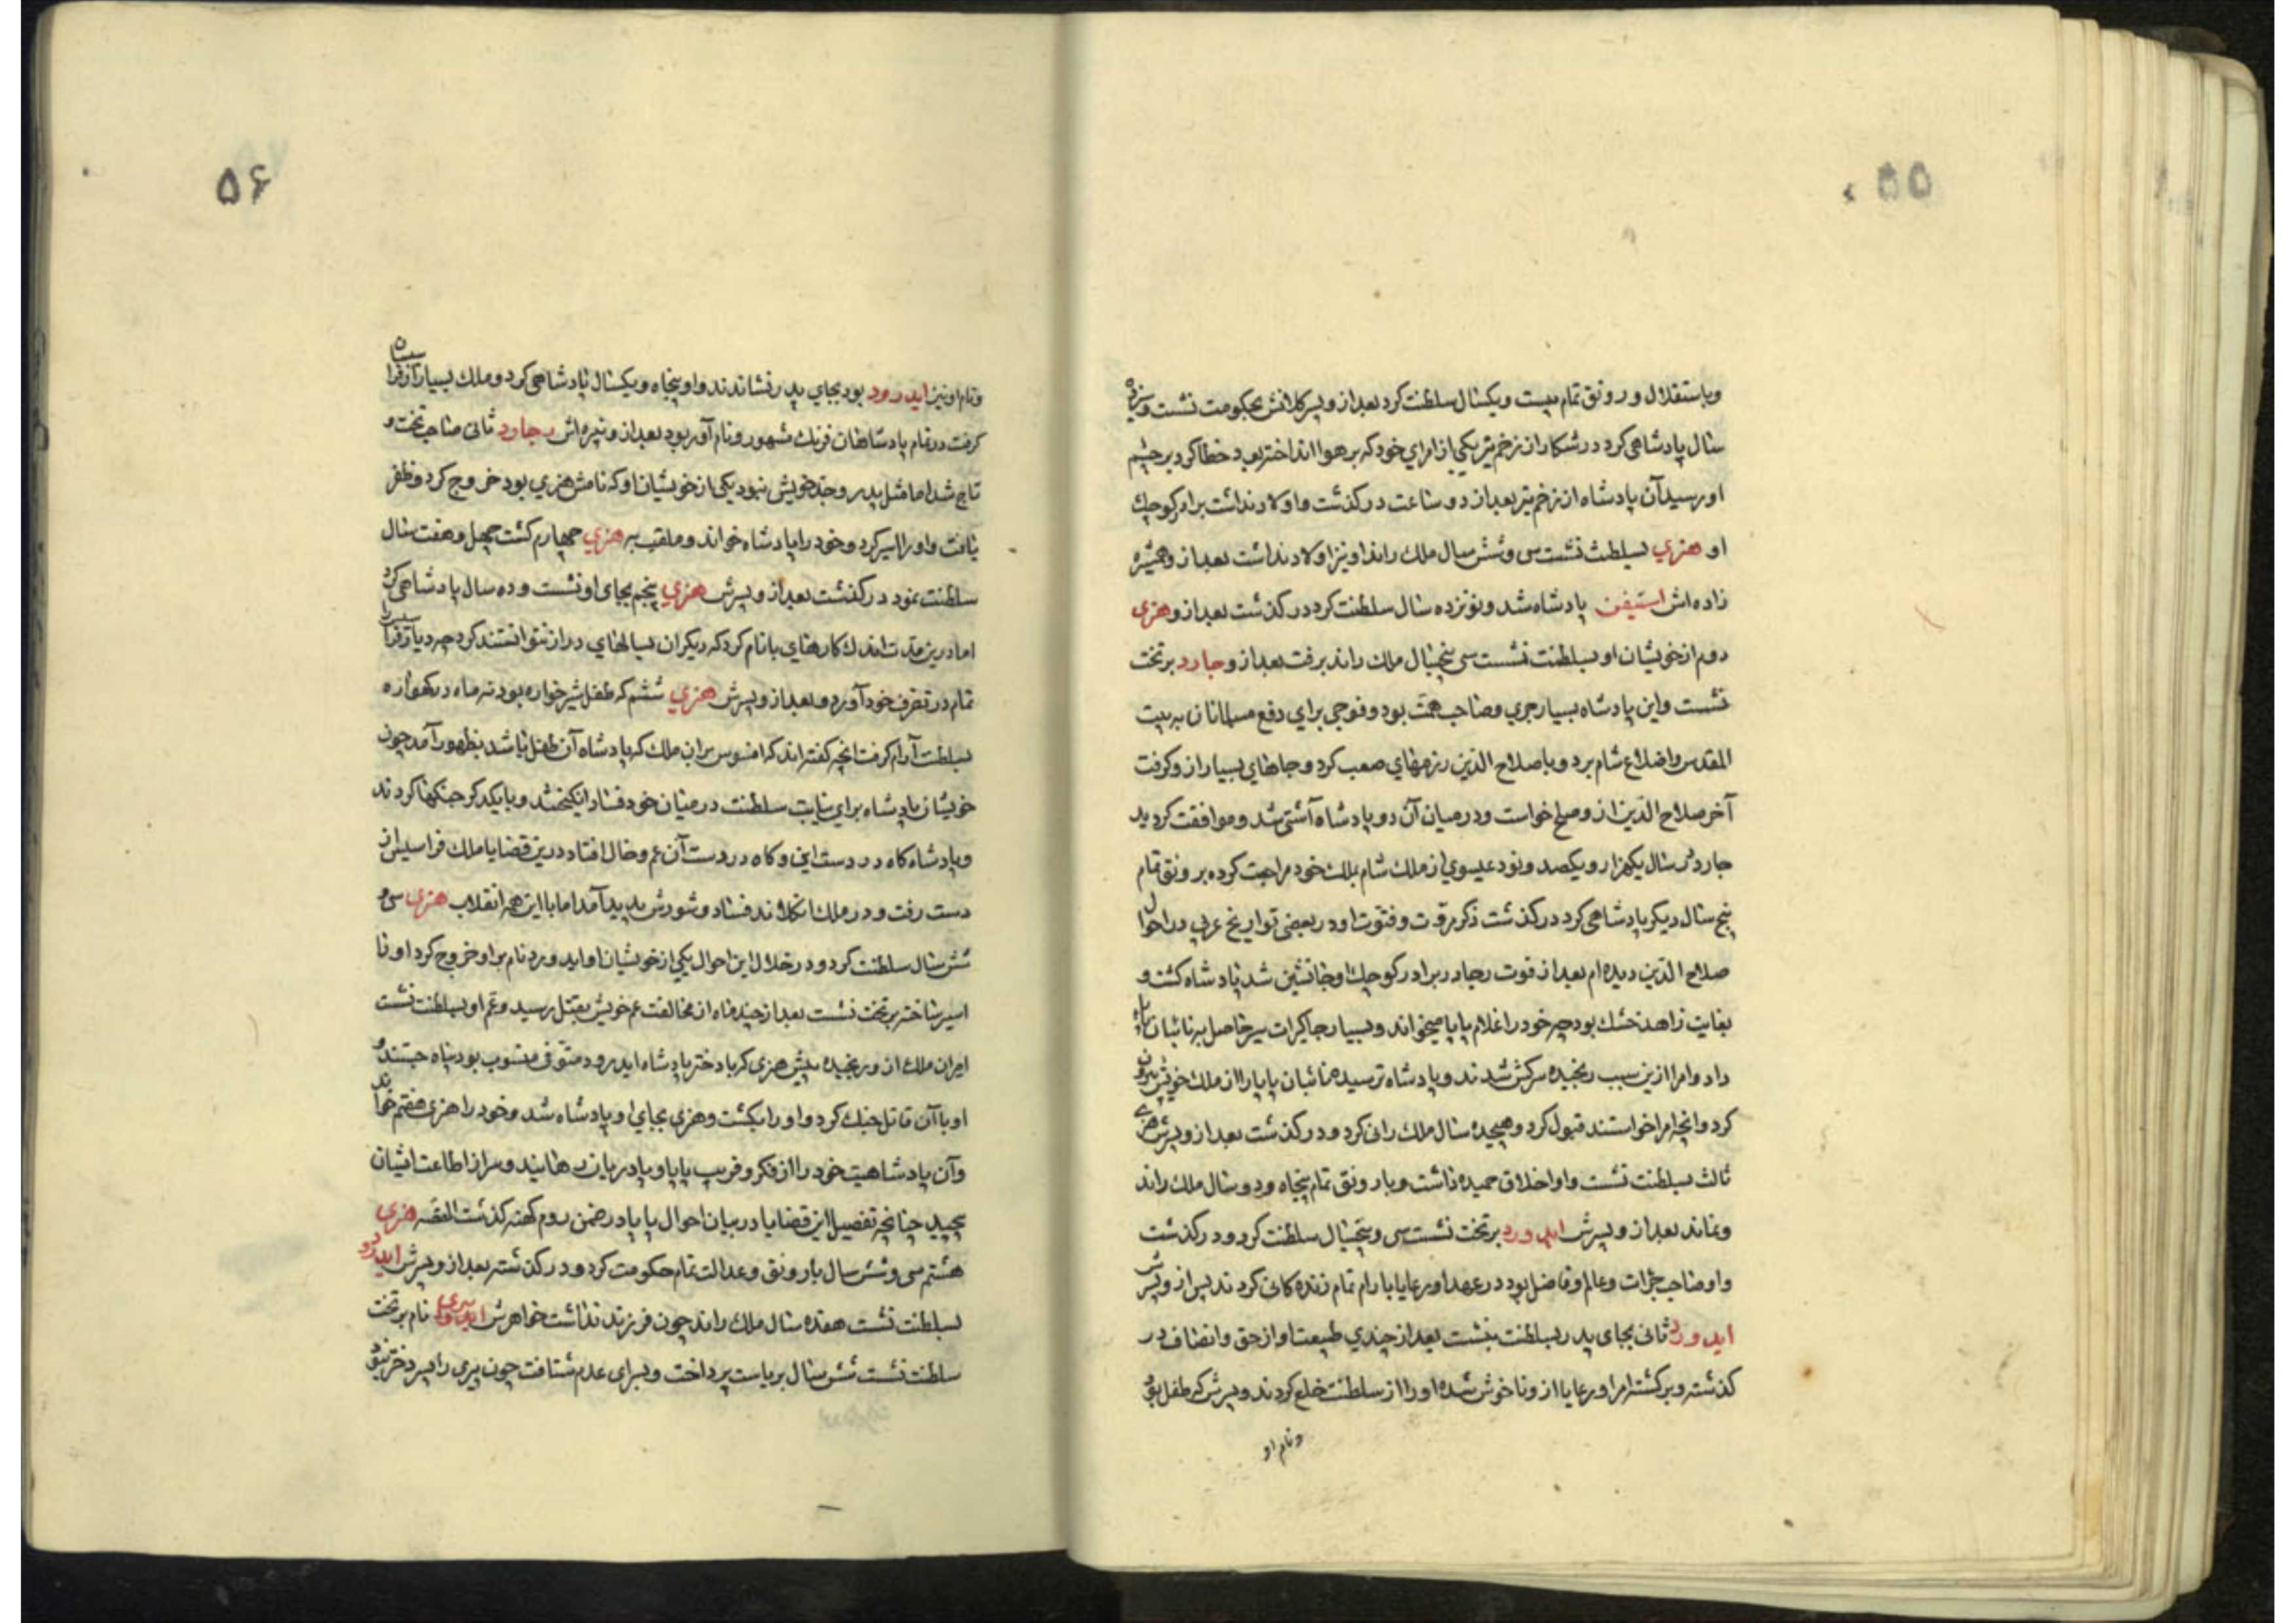 ۵۵
وباستقلال و رونق تمام بیست ویکسال سلطنت کرد بعد از و پسر کلانش بحکومت نشست وسیزده
سال پادشاهی کرد در شکار از زخم تیر یکی از امرای خود که بر هوا انداخته بود خطا کرد بر چشم
او رسید آن پادشاه از زخم تیر بعد از دو ساعت درکذشت و اولاد نداشت برادر کوچك
او هنري بسلطنت نشست سی وشش سال ملك راند او نیز اولاد نداشت بعد از و همشیره
زاده اش استیفن پادشاه شد و نوزده سال سلطنت کرد درکذشت بعد از و هنری
دوم از خویشان او بسلطنت نشست سی پنجسال ملك راند برفت بعد از و جارد بر تخت
نشست واین پادشاه بسیار جری وصاحب همت بود وفوجی برای دفع مسلمانان به بیت
المقدس واضلاع شام برد و با صلاح الدین رزمهای صعب کرد و جاهای بسیار از و کرفت
آخر صلاح الدین از و صلح خواست و درمیان آن دو پادشاه آشتی شد و موافقت کردید
جارد در سال یکهزار و یکصد و نود عیسوی از ملك شام بملك خود مراجعت کرده بر ونق تمام
پنج سال دیکر پادشاهی کرد درکذشت ذکر مروت و فتوت او در بعضی تواریخ عربی در احوال
صلاح الدین دیده ام بعد از فوت رجارد برادر کوچك او جانشین شد پادشاه کشت و
بغایت زاهد خشك بود چه خود را غلام پاپا میخواند و بسیار جاکیرات سیرحاصل به نائبان پاپا
داد و امرا ازین سبب رنجیده سرکش شدند و پادشاه ترسید نائبان پاپا را از ملك خویش بیرون
کرد و انچه امرا خواستند قبول کرد و هیجده سال ملك رانی کرد و درکذشت بعد از و پسرش هنری
ثالث بسلطنت نشست و او اخلاق حمیده داشت و با رونق تمام پنجاه و دو سال ملك راند
ونماند بعد از و پسرش ایدورد بر تخت نشست سی و پنجسال سلطنت کرد و درکذشت
و او صاحب جرات وعالم و فاضل بود در عهد او رعایا بارام تمام زنده کانی کردند پس از و پسرش
ایدورد ثانی بجای پدر بسلطنت بنشست بعد از چندی طبیعت او از حق وانصاف در
کذشته و برکشته امرا و رعایا از و ناخوش شده او را از سلطنت خلع کردند و پسرش که طفل بود
ونام او
۵۶
ونام او نیز ایدرود بود بجای پدر نشاندند و او پنجاه و یکسال پادشاهی کرد و ملك بسیار از فراسیسان
کرفت در تمام پادشاهان فرنك مشهور و نام آور بود بعد از و نبیره اش رجارد ثانی صاحب تخت و
تاج شد اما مثل پدر و جد خویش نبود یکی از خویشان او که نامش هنری بود خروج کرد و ظفر
یافت و او را اسیر کرد و خود را پادشاه خواند و ملقب به هنري چهارم کشت چهل و هفت سال
سلطنت نمود درکذشت بعد از و پسرش هنري پنجم بجای او نشست و ده سال پادشاهی کرد
اما درین مدت اندك کارهای با نام کرد که دیکران بسالهای دراز نتوانستند کرد چه دیار فراسیس را
تمام در تصرف خود آورد و بعد از و پسرش هنري ششم که طفل شیرخواره بود نه ماه در کهواره
بسلطنت آرام کرفت انچه کفته اند که افسوس بر ان ملك که پادشاه آن طفل باشد بظهور آمد چون
خویشان پادشاه برای نیابت سلطنت درمیان خود فساد انکیختند و با یکدکر جنکها کردند
و پادشاه کاه در دست این و کاه در دست آن عم و خال افتاد درین قضایا ملك فراسیس از
دست رفت و در ملك انکلاند فساد و شورش پدید آمد اما با این همه انقلاب هنری سی و
شش سال سلطنت کرد و در خلال این احوال یکی از خویشان او ایدورد نام بر او خروج کرد او را
اسیر ساخته بر تخت نشست بعد از چند ماه از مخالفت عم خویش بقتل رسید و عم او بسلطنت نشست
امیران ملك از و رنجیده پیش هنری که با دختر پادشاه ایدرود متوفی منسوب بود پناه جستند و
او با آن قاتل جنك کرد و او را بکشت و هنری بجای او پادشاه شد و خود را هنری هفتم خواند
وآن پادشاهیت خود را از فکر و فریب پاپا و پادریان رهانید و سر از اطاعت ایشان
پیچید چنانچه تفصیل این قضایا در بیان احوال پاپا در ضمن روم کهنه کذشت القصه هنری
هشتم سی و شش سال با رونق و عدالت تمام حکومت کرد و درکذشت بعد از و پسرش ایدرود
بسلطنت نشست هفده سال ملك راند چون فرزند نداشت خواهرش میری نام بر تخت
سلطنت نشست شش سال بریاست پرداخت و بسرای عدم شتافت چون میری را پسر و دختر نبود